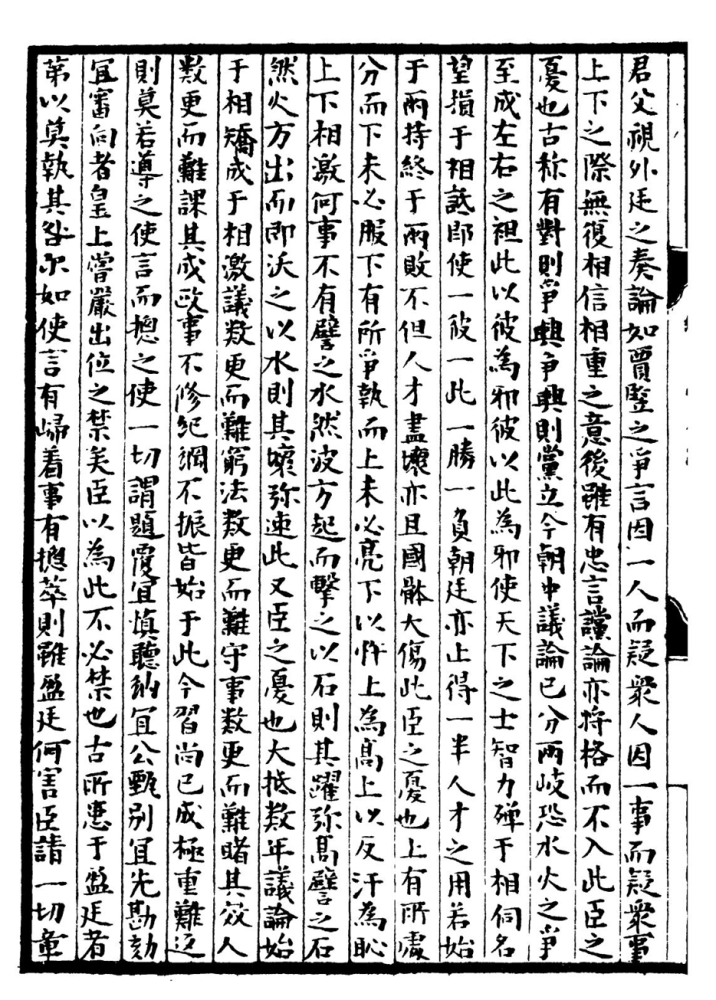 君父視外廷之奏論如賈豎之爭言因一人而疑衆人因一事而疑衆事
上下之際無復相信相重之意後雖有忠言讜論亦捍格而不入此臣之
憂也古称有對則爭興爭興則黨立今朝中議論已分兩岐恐水火之爭
至成左右之袒此以彼為邪彼以此為邪使天下之士智力殫于相伺名
望損于相詆即使一彼一此一勝一負朝廷亦止得一半人才之用若始
于兩持終于兩敗不但人才盡壞亦且國骵大傷此臣之憂也上有所處
分而下未必服下有所爭執而上未必亮下以忤上為高上以反汗為恥
上下相激何事不有譬之水然波方起而擊之以石則其躍弥高譬之石
然火方出而即沃之以水則其壞弥速此又臣之憂也大抵数年議論始
于相矯成于相激議数更而難窮法数更而難守事数更而難睹其效人
数更而難課其成政事不修紀綱不振皆始于此今習尚已成極重難返
則莫若導之使言而摠之使一切謂題覆宜慎聽納宜公甄別宜先勘劾
宜審向者皇上嘗嚴出位之禁矣臣以為此不必禁也古所患于盈廷者
第以莫執其咎尔如使言有歸着事有摠萃則雖盈廷何害臣請一切章